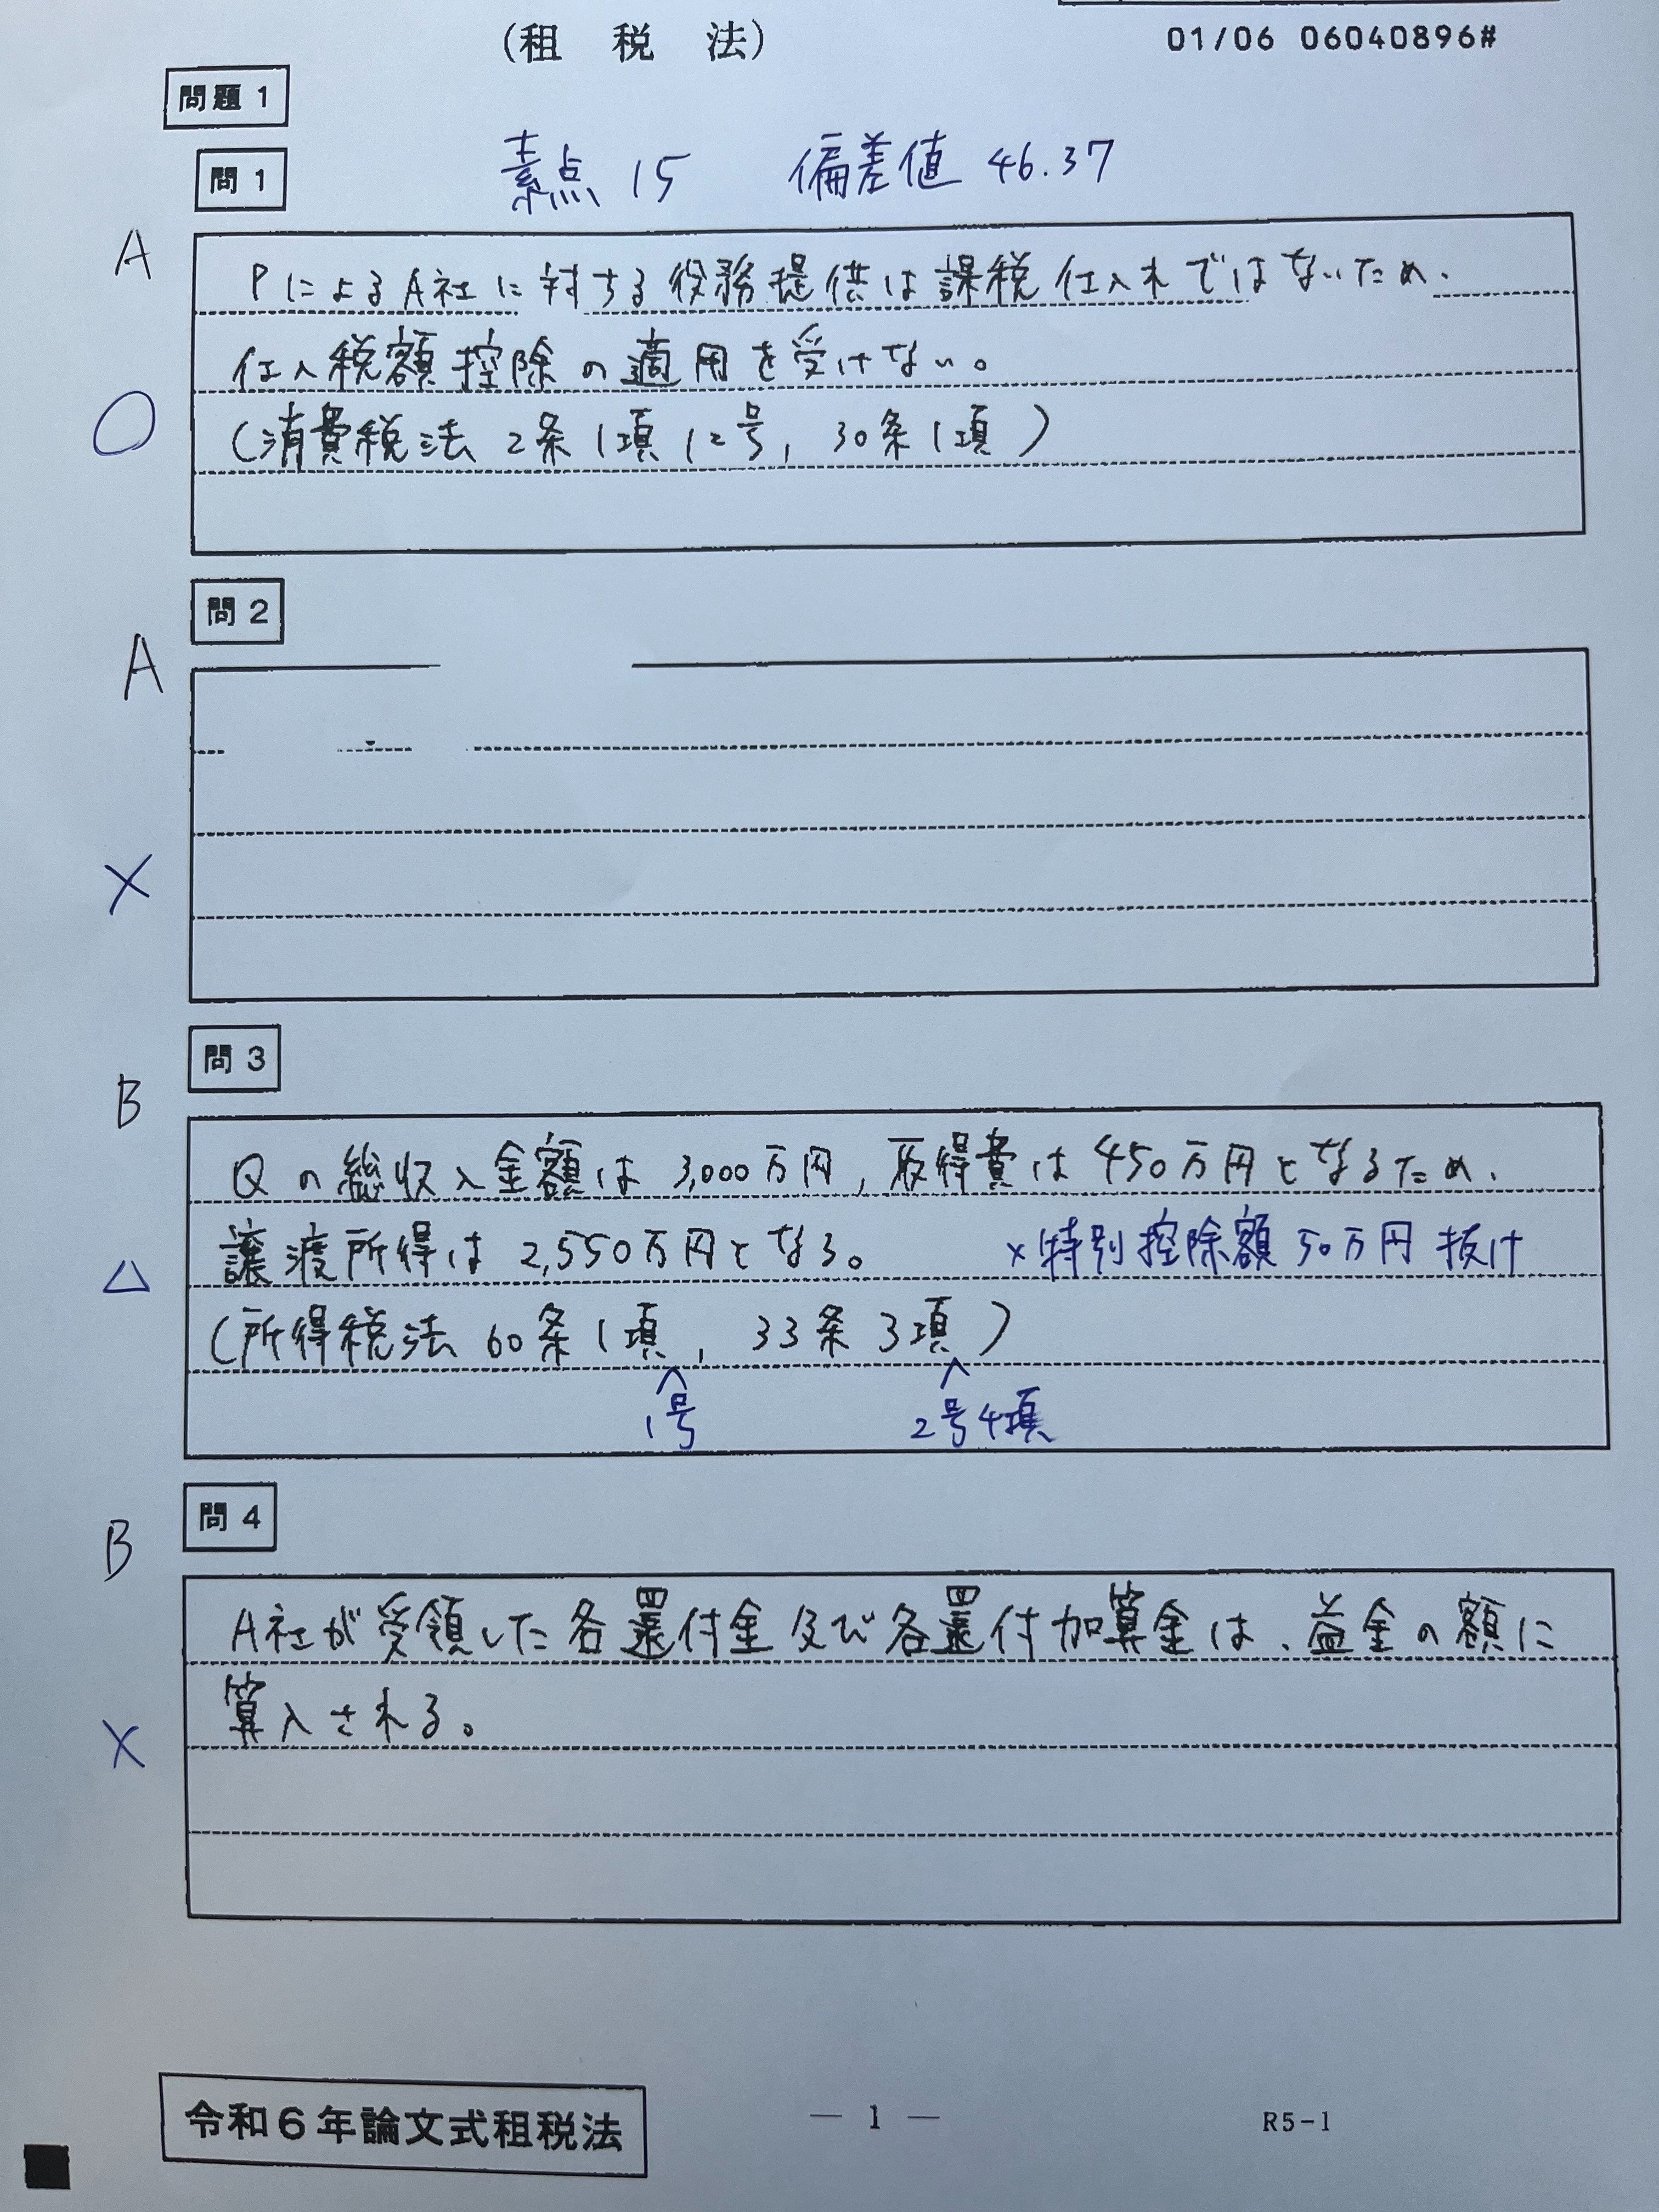 （租　税　法）
01/06 06040896#
問題 1
問 1
素点 15　偏差値 46.37
A
PによるA社に対する役務提供は課税仕入れではないため、
仕入税額控除の適用を受けない。
○
（消費税法 2条1項12号, 30条1項）
問 2
A
×
問 3
B
Qの総収入金額は3,000万円, 取得費は450万円となるため、
譲渡所得は2,550万円となる。　×特別控除額50万円抜け
△
（所得税法 60条1項, 33条3項）
^ 1号　^ 2号4項
問 4
B
A社が受領した各還付金及び各還付加算金は、益金の額に
算入される。
×
令和6年論文式租税法
― 1 ―
R5-1